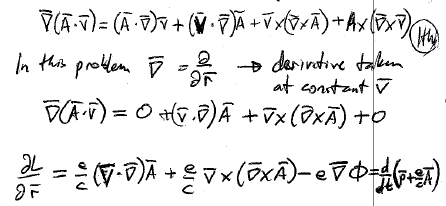 ∇̄(Ā·v̄) = (Ā·∇̄)v̄ + (v̄·∇̄)Ā + v̄×(∇̄×Ā) + Ā×(∇̄×v̄)
In this problem ∇̄ = ∂/∂r̄ → derivative taken
at constant v̄
∇̄(Ā·v̄) = 0 + (v̄·∇̄)Ā + v̄×(∇̄×Ā) + 0
∂L/∂r̄ = e/c (v̄·∇̄)Ā + e/c v̄×(∇̄×Ā) − e∇̄Φ = d/dt(p̄ + e/c Ā)